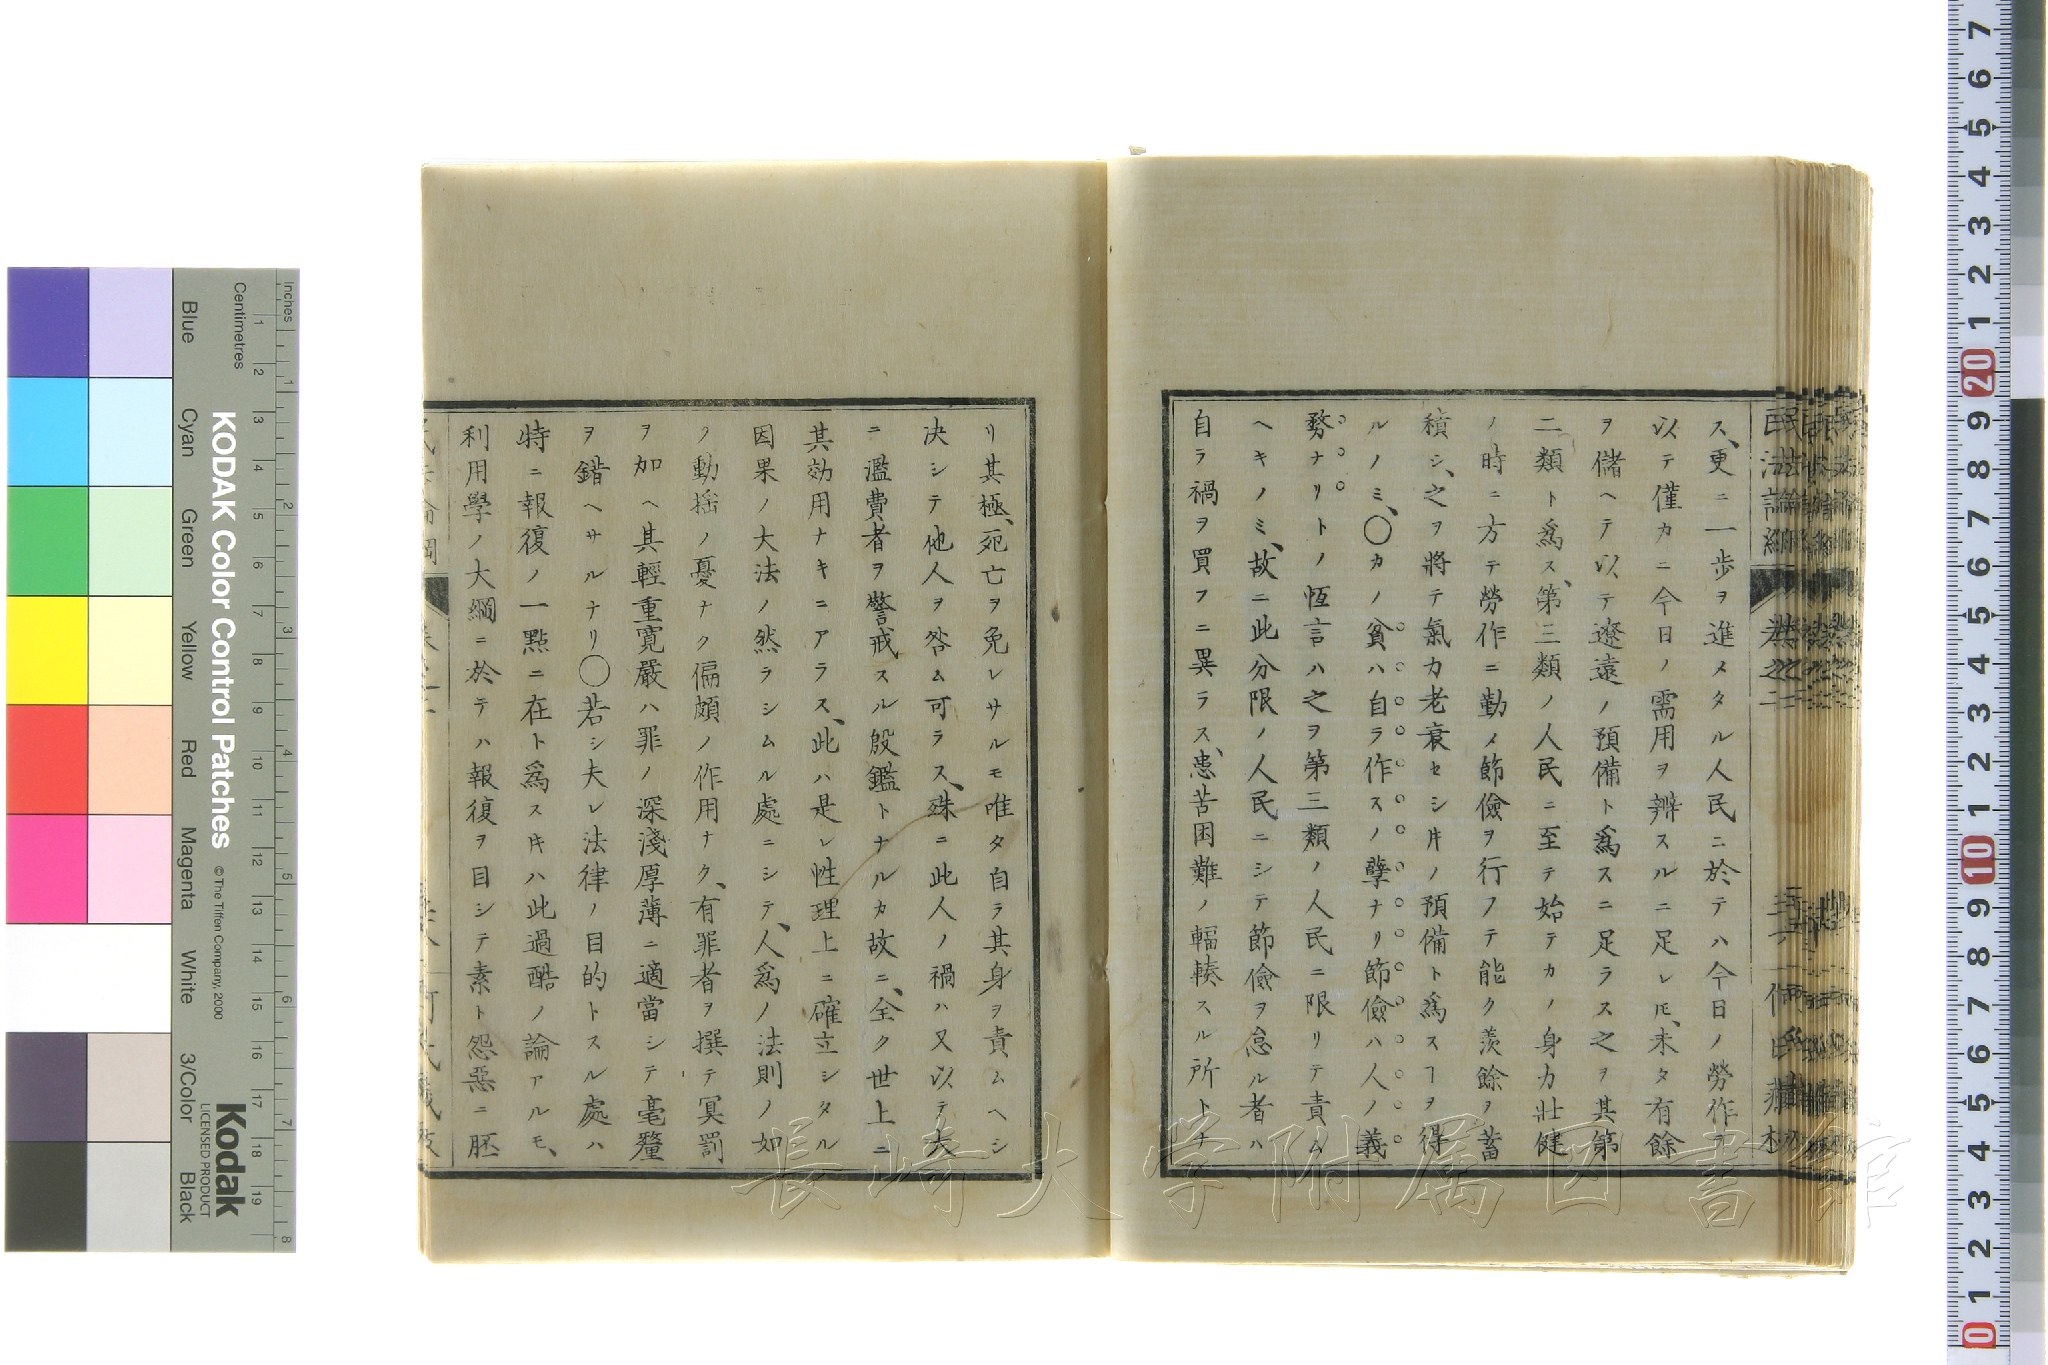 ス、更ニ一歩ヲ進メタル人民ニ於テハ今日ノ勞作ヲ
以テ僅カニ今日ノ需用ヲ辨スルニ足レ𪜈、未タ有餘
ヲ儲ヘテ以テ遼遠ノ預備ト爲スニ足ラス之ヲ其第
二類ト爲ス、第三類ノ人民ニ至テ始テカノ身力壯健
ノ時ニ方テ勞作ニ勤メ節儉ヲ行フテ能ク羨餘ヲ蓄
積シ、之ヲ將テ氣力老衰セシ片ノ預備ト爲スヿヲ得
ルノミ、〇カノ貧ハ自ラ作スノ孽ナリ節儉ハ人ノ義
務ナリトノ恆言ハ之ヲ第三類ノ人民ニ限リテ責ム
ヘキノミ、故ニ此分限ノ人民ニシテ節儉ヲ怠ル者ハ
自ラ禍ヲ買フニ異ラス、患苦困難ノ輻輳スル所トナ
リ其極、死亡ヲ免レサルモ唯タ自ラ其身ヲ責ムヘシ
决シテ他人ヲ咎ム可ラス、殊ニ此人ノ禍ハ又以テ大
ニ濫費者ヲ警戒スル殷鑑トナルカ故ニ、全ク世上ニ
其効用ナキニアラス、此ハ是レ性理上ニ確立シタル
因果ノ大法ノ然ラシムル處ニシテ、人爲ノ法則ノ如
ク動搖ノ憂ナク偏頗ノ作用ナク、有罪者ヲ撰テ冥罰
ヲ加ヘ其輕重寬嚴ハ罪ノ深淺厚薄ニ適當シテ毫釐
ヲ錯ヘサルナリ〇若シ夫レ法律ノ目的トスル處ハ
特ニ報復ノ一點ニ在ト爲ス片ハ此過酷ノ論アルモ、
利用學ノ大綱ニ於テハ報復ヲ目シテ素ト怨惡ニ胚
民法論綱 卷之二
長崎大学附属図書館
KODAK Color Control Patches
© The Tiffen Company, 2000
Kodak
LICENSED PRODUCT
Inches
Centimetres
Blue Cyan Green Yellow Red Magenta White 3/Color Black